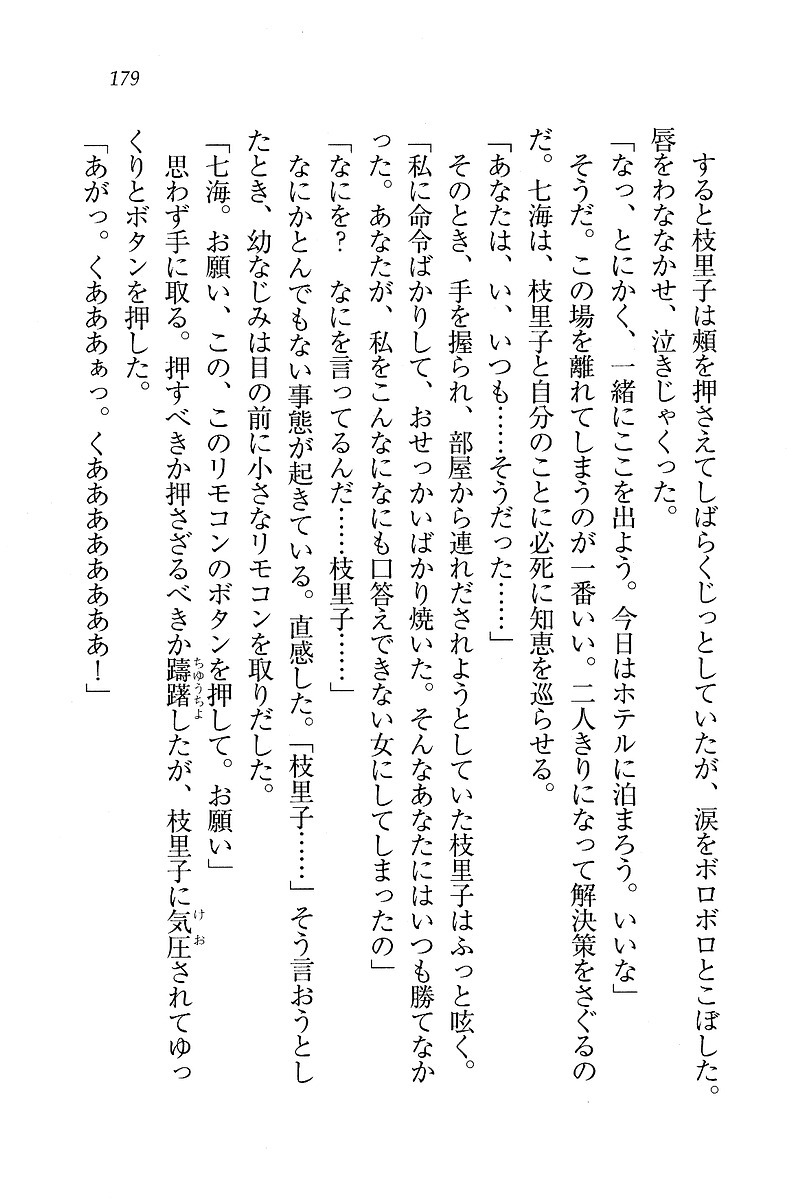 179
すると枝里子は頰を押さえてしばらくじっとしていたが、涙をボロボロとこぼした。
唇をわななかせ、泣きじゃくった。
「なっ、とにかく、一緒にここを出よう。今日はホテルに泊まろう。いいな」
そうだ。この場を離れてしまうのが一番いい。二人きりになって解決策をさぐるの
だ。七海は、枝里子と自分のことに必死に知恵を巡らせる。
「あなたは、い、いつも……そうだった……」
そのとき、手を握られ、部屋から連れだされようとしていた枝里子はふっと呟く。
「私に命令ばかりして、おせっかいばかり焼いた。そんなあなたにはいつも勝てなか
った。あなたが、私をこんなになにも口答えできない女にしてしまったの」
「なにを？　なにを言ってるんだ……枝里子……」
なにかとんでもない事態が起きている。直感した。「枝里子……」そう言おうとし
たとき、幼なじみは目の前に小さなリモコンを取りだした。
「七海。お願い、この、このリモコンのボタンを押して。お願い」
思わず手に取る。押すべきか押さざるべきか躊躇ちゆうちよしたが、枝里子に気圧けおされてゆっ
くりとボタンを押した。
「あがっ。くあああぁっ。くああああああああ！」